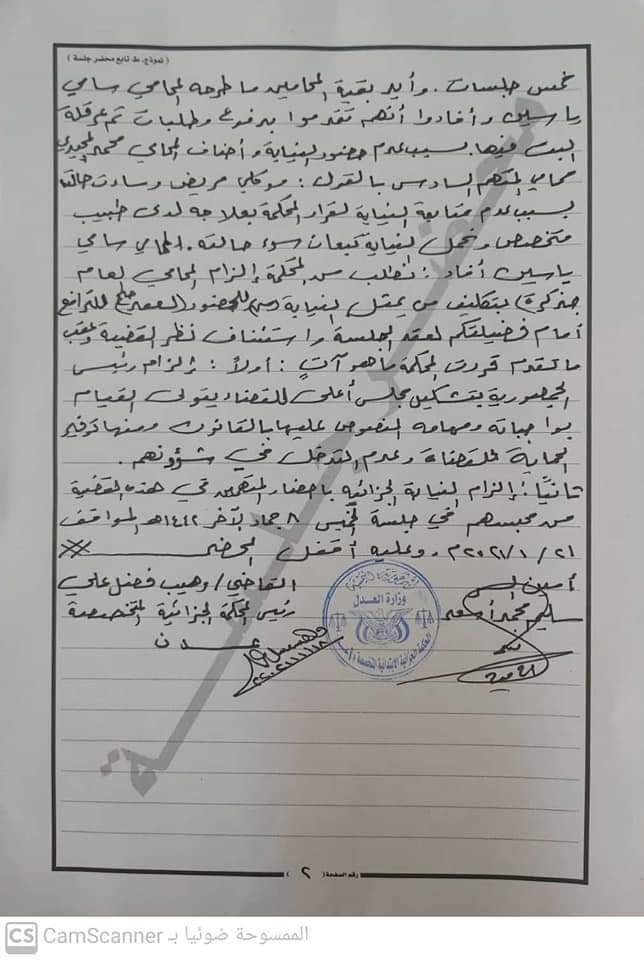 ( نموذج. ط. تابع محضر جلسة )
خمس جلسات . وأيد بقية المحامين ما طرحه المحامي سامي
ياسين وأفادوا أنهم تقدموا بدفوع وطلبات تم عرقلة
البت فيها بسبب عدم حضور النيابة وأضاف المحامي محمد
محامي المتهم السادس بالقول : موكلي مريض وساءت حالته
بسبب عدم متابعة النيابة لقرار المحكمة بعلاجه لدى طبيب
متخصص وتحمل النيابة تبعات سوء حالته . المحامي سامي
ياسين أفاد : نطلب من المحكمة إلزام المحامي العام
بتكليف من يمثل النيابة للحضور للترافع
أمام فضيلتكم لعقد الجلسة واستئناف نظر القضية وعقب
ما تقدم قررت المحكمة ما هو آتٍ : أولاً : إلزام رئيس
الجمهورية بتشكيل مجلس أعلى للقضاء يتولى القيام
بواجباته ومهامه المنصوص عليها بالقانون ومنها توفير
الحماية للقضاة وعدم التدخل في شؤونهم .
ثانياً : إلزام النيابة الجزائية بإحضار المتهمين في هذه القضية
من محبسهم في جلسة الخميس ٨ جماد الآخر ١٤٤٢هـ الموافق
٢١ / ١ / ٢٠٢١م . وعليه أقفل المحضر
أمين السر
القاضي / وهيب فضل علي
سليم محمد أسعد
رئيس المحكمة الجزائية المتخصصة
عدن
وزارة العدل
المحكمة الجزائية الابتدائية المتخصصة
محضر جلسة
رقم الصفحة ( ٢ )
CS CamScanner الممسوحة ضوئيا بـ